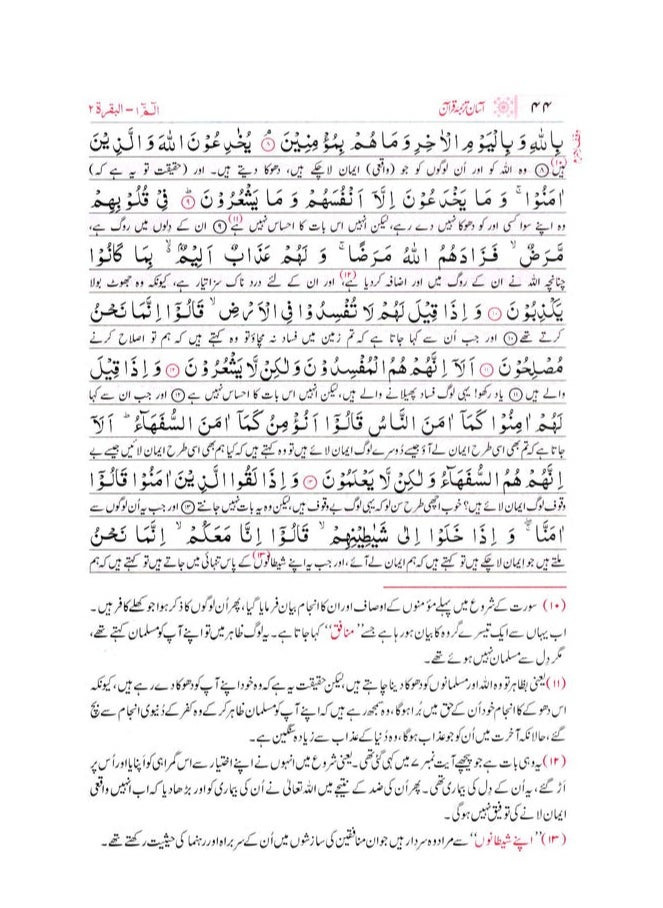 ۴۴ آسان ترجمۂ قرآن الٓمّٓ ۱ – البقرة ۲
بِاللّٰهِ وَ بِالْيَوْمِ الْاٰخِرِ وَ مَا هُمْ بِمُؤْمِنِيْنَ ۘ ﴿۸﴾ يُخٰدِعُوْنَ اللّٰهَ وَ الَّذِيْنَ
ہیں (۱۰) ﴿۸﴾ وہ اللہ کو اور اُن لوگوں کو جو (واقعی) ایمان لا چکے ہیں، دھوکا دیتے ہیں۔ اور (حقیقت تو یہ ہے کہ)
اٰمَنُوْا ۚ وَ مَا يَخْدَعُوْنَ اِلَّاۤ اَنْفُسَهُمْ وَ مَا يَشْعُرُوْنَ ﴿۹﴾ فِيْ قُلُوْبِهِمْ
وہ اپنے سوا کسی اور کو دھوکا نہیں دے رہے، لیکن انہیں اس بات کا احساس نہیں ہے (۱۱) ﴿۹﴾ ان کے دلوں میں روگ ہے،
مَّرَضٌ ۙ فَزَادَهُمُ اللّٰهُ مَرَضًا ۚ وَ لَهُمْ عَذَابٌ اَلِيْمٌۢ ۙ بِمَا كَانُوْا
چنانچہ اللہ نے ان کے روگ میں اور اضافہ کر دیا ہے، (۱۲) اور ان کے لئے درد ناک سزا تیار ہے، کیونکہ وہ جھوٹ بولا
يَكْذِبُوْنَ ﴿۱۰﴾ وَ اِذَا قِيْلَ لَهُمْ لَا تُفْسِدُوْا فِي الْاَرْضِ ۙ قَالُوْۤا اِنَّمَا نَحْنُ
کرتے تھے ﴿۱۰﴾ اور جب اُن سے کہا جاتا ہے کہ تم زمین میں فساد نہ مچاؤ تو وہ کہتے ہیں کہ ہم تو اصلاح کرنے
مُصْلِحُوْنَ ﴿۱۱﴾ اَلَاۤ اِنَّهُمْ هُمُ الْمُفْسِدُوْنَ وَ لٰكِنْ لَّا يَشْعُرُوْنَ ﴿۱۲﴾ وَ اِذَا قِيْلَ
والے ہیں ﴿۱۱﴾ یاد رکھو! یہی لوگ فساد پھیلانے والے ہیں، لیکن انہیں اس بات کا احساس نہیں ہے ﴿۱۲﴾ اور جب ان سے کہا
لَهُمْ اٰمِنُوْا كَمَاۤ اٰمَنَ النَّاسُ قَالُوْۤا اَنُؤْمِنُ كَمَاۤ اٰمَنَ السُّفَهَآءُ ؕ اَلَاۤ
جاتا ہے کہ تم بھی اسی طرح ایمان لے آؤ جیسے دُوسرے لوگ ایمان لائے ہیں تو وہ کہتے ہیں کہ کیا ہم بھی اسی طرح ایمان لائیں جیسے بے
اِنَّهُمْ هُمُ السُّفَهَآءُ وَ لٰكِنْ لَّا يَعْلَمُوْنَ ﴿۱۳﴾ وَ اِذَا لَقُوا الَّذِيْنَ اٰمَنُوْا قَالُوْۤا
وقوف لوگ ایمان لائے ہیں؟ خوب اچھی طرح سن لو کہ یہی لوگ بے وقوف ہیں لیکن وہ یہ بات نہیں جانتے ﴿۱۳﴾ اور جب یہ اُن لوگوں سے
اٰمَنَّا ۖۚ وَ اِذَا خَلَوْا اِلٰى شَيٰطِيْنِهِمْ ۙ قَالُوْۤا اِنَّا مَعَكُمْ ۙ اِنَّمَا نَحْنُ
ملتے ہیں جو ایمان لا چکے ہیں تو کہتے ہیں کہ ہم ایمان لے آئے، اور جب یہ اپنے شیطانوں (۱۳) کے پاس تنہائی میں جاتے ہیں تو کہتے ہیں کہ ہم
(۱۰) سورت کے شروع میں پہلے مؤمنوں کے اوصاف اور ان کا انجام بیان فرمایا گیا، پھر اُن لوگوں کا ذکر ہوا جو کھلے کافر ہیں۔
اب یہاں سے ایک تیسرے گروہ کا بیان ہو رہا ہے جسے ”منافق“ کہا جاتا ہے۔ یہ لوگ ظاہر میں تو اپنے آپ کو مسلمان کہتے تھے،
مگر دِل سے مسلمان نہیں ہوئے تھے۔
(۱۱) یعنی بظاہر تو وہ اللہ اور مسلمانوں کو دھوکا دینا چاہتے ہیں، لیکن حقیقت یہ ہے کہ وہ خود اپنے آپ کو دھوکا دے رہے ہیں، کیونکہ
اس دھوکے کا انجام خود اُن کے حق میں بُرا ہوگا، وہ سمجھ رہے ہیں کہ اپنے آپ کو مسلمان ظاہر کر کے وہ کفر کے دُنیوی انجام سے بچ
گئے، حالانکہ آخرت میں اُن کو جو عذاب ہوگا، وہ دُنیا کے عذاب سے زیادہ سنگین ہے۔
(۱۲) یہ وہی بات ہے جو پیچھے آیت نمبر ۷ میں کہی گئی تھی۔ یعنی شروع میں انہوں نے اپنے اختیار سے اس گمراہی کو اَپنایا اور اُس پر
اَڑ گئے، یہ اُن کے دِل کی بیماری تھی۔ پھر اُن کی ضد کے نتیجے میں اللہ تعالیٰ نے اُن کی بیماری کو اور بڑھا دیا کہ اب انہیں واقعی
ایمان لانے کی توفیق نہیں ہوگی۔
(۱۳) ”اپنے شیطانوں“ سے مراد وہ سردار ہیں جو ان منافقین کی سازشوں میں اُن کے سربراہ اور رہنما کی حیثیت رکھتے تھے۔